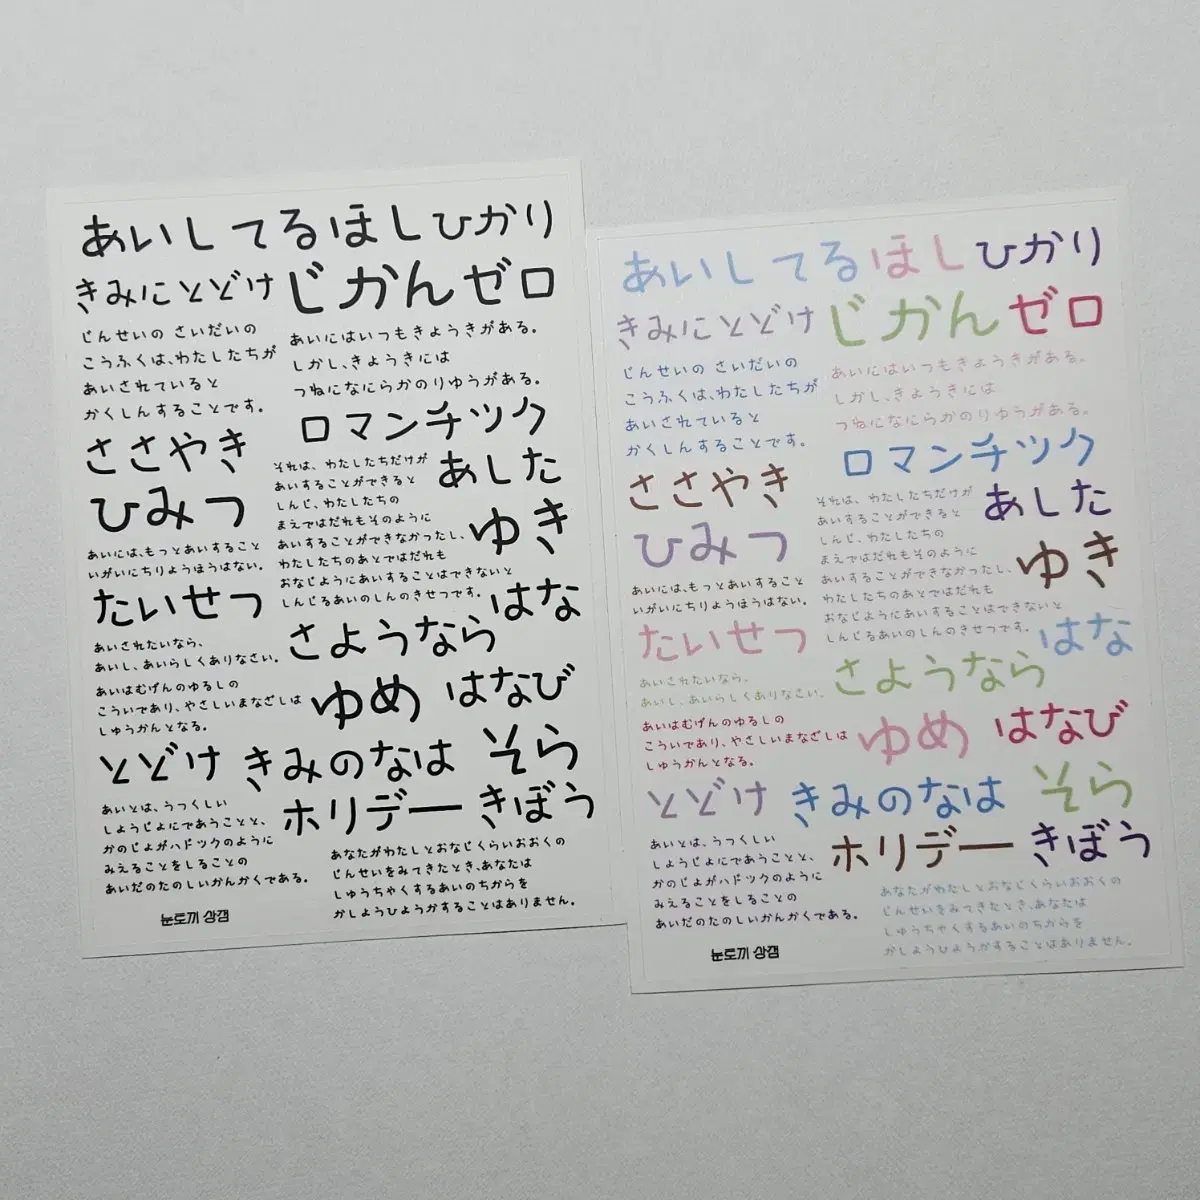 あいしてるほしひかり
きみにとどけ じかんゼロ
じんせいの さいだいの
こうふくは、わたしたちが
あいされていると
かくしんすることです。
あいにはいつもきょうきがある。
しかし、きょうきには
つねになにらかのりゆうがある。
ささやき
ひみつ
ロマンチツク
それは、わたしたちだけが
あいすることができると
しんじ、わたしたちの
まえではだれもそのように
あいすることができなかったし、
わたしたちのあとではだれも
おなじようにあいすることはできないと
しんじるあいのしんのきせつです。
あした
ゆき
あいには、もっとあいすること
いがいにちりょうほうはない。
たいせつ
はな
あいされたいなら、
あいし、あいらしくありなさい。
さようなら
あいはむげんのゆるしの
こういであり、やさしいまなざしは
しゅうかんとなる。
ゆめ はなび
とどけ きみのなは そら
あいとは、うつくしい
しょうじょにであうことと、
かのじょがハドックのように
みえることをしることの
あいだのたのしいかんかくである。
ホリデー きぼう
あなたがわたしとおなじくらいおおくの
じんせいをみてきたとき、あなたは
しゅうちゃくするあいのちからを
かしょうひょうかすることはありません。
눈토끼 상점
あいしてるほしひかり
きみにとどけ じかんゼロ
じんせいの さいだいの
こうふくは、わたしたちが
あいされていると
かくしんすることです。
あいにはいつもきょうきがある。
しかし、きょうきには
つねになにらかのりゆうがある。
ささやき
ひみつ
ロマンチツク
それは、わたしたちだけが
あいすることができると
しんじ、わたしたちの
まえではだれもそのように
あいすることができなかったし、
わたしたちのあとではだれも
おなじようにあいすることはできないと
しんじるあいのしんのきせつです。
あした
ゆき
あいには、もっとあいすること
いがいにちりょうほうはない。
たいせつ
はな
あいされたいなら、
あいし、あいらしくありなさい。
さようなら
あいはむげんのゆるしの
こういであり、やさしいまなざしは
しゅうかんとなる。
ゆめ はなび
とどけ きみのなは そら
あいとは、うつくしい
しょうじょにであうことと、
かのじょがハドックのように
みえることをしることの
あいだのたのしいかんかくである。
ホリデー きぼう
あなたがわたしとおなじくらいおおくの
じんせいをみてきたとき、あなたは
しゅうちゃくするあいのちからを
かしょうひょうかすることはありません。
눈토끼 상점